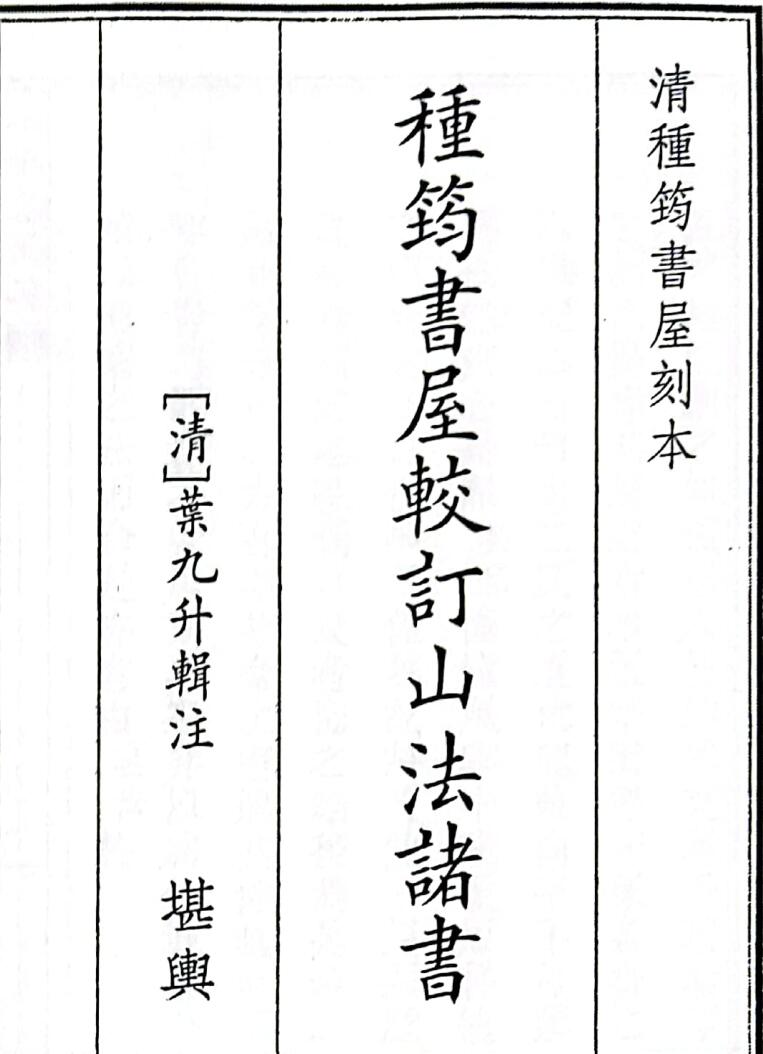 清種筠書屋刻本
種筠書屋較訂山法諸書
［清］葉九升輯注　堪輿